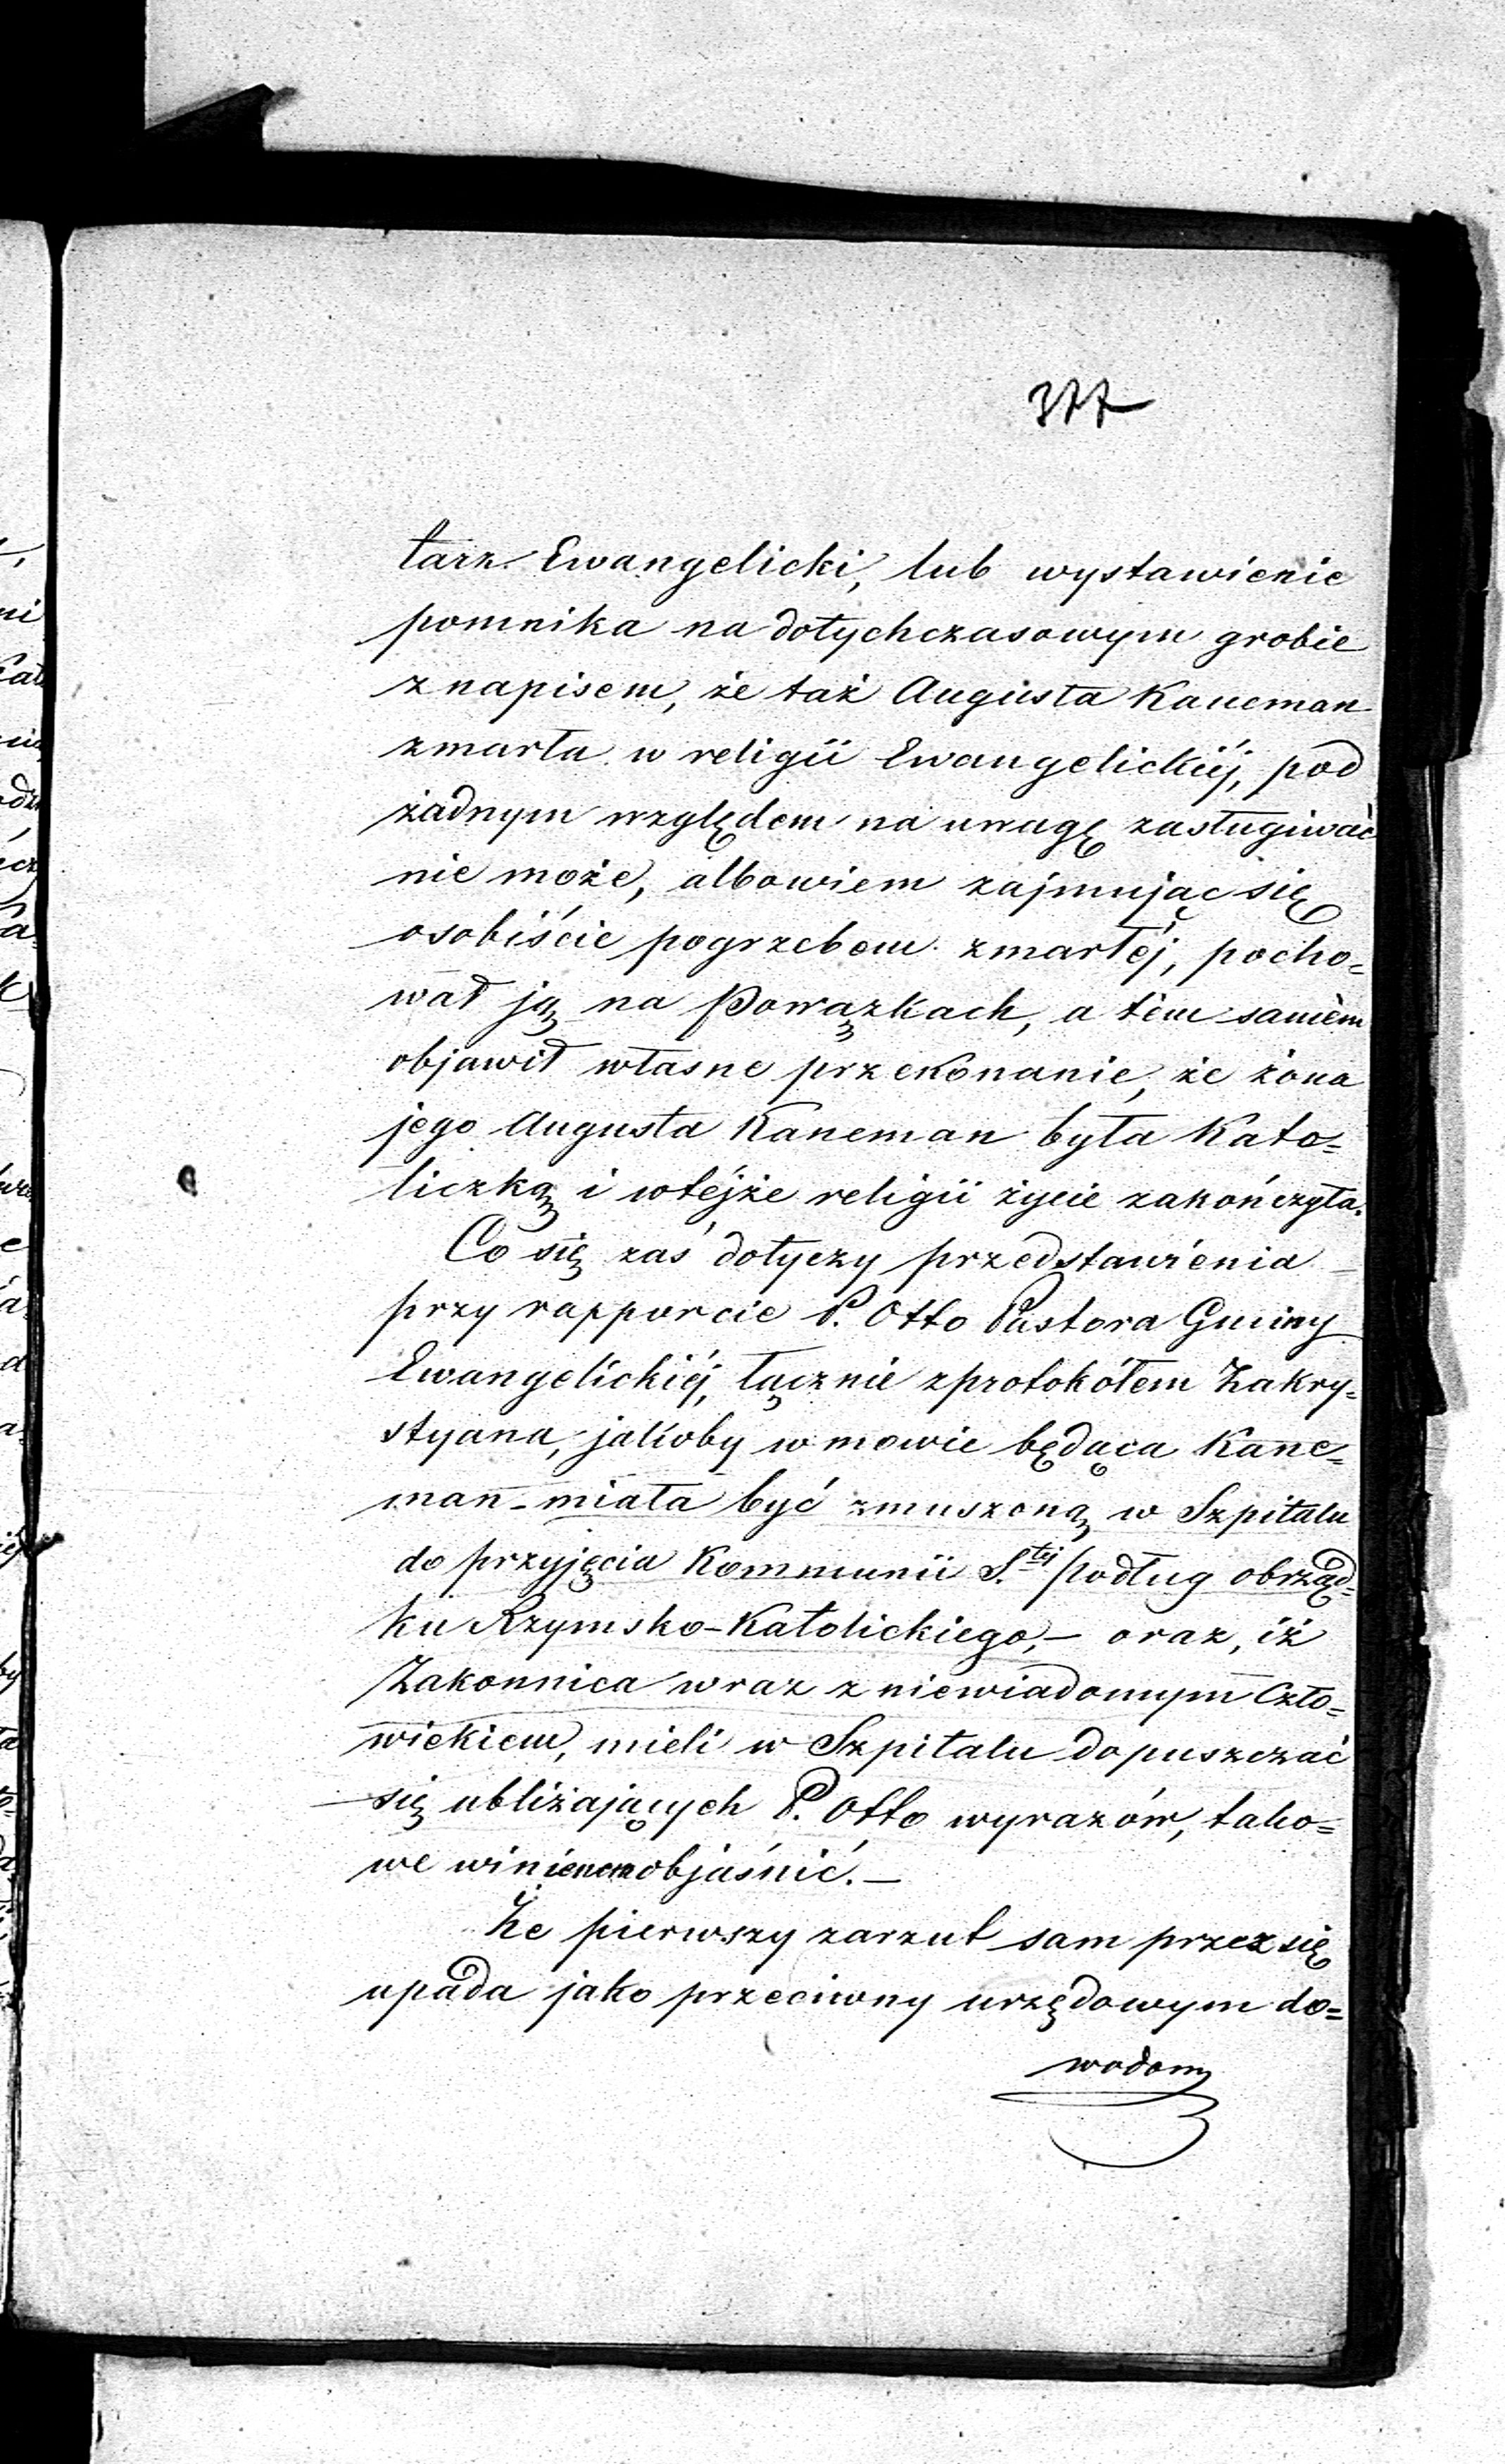 377
tarz Ewangelicki, lub wystawienie
pomnika na dotychczasowym grobie
z napisem, że taż Augusta Kaneman
zmarła w religii Ewangelickiéj, pod
żadnym względem na uwagę zasługiwać
nie może, albowiem zajmując się
osobiście pogrzebem zmarłéj, pocho=
wał ją na Powązkach, a tém samém
objawił własne przekonanie, że żona
jego Augusta Kaneman była Kato=
liczką i w téjże religii życie zakończyła.
Co się zaś dotyczy przedstawienia
przy rapporcie P. Otto Pastora Gminy
Ewangelickiéj, łącznie z protokółem Zakry=
styana, jakoby w mowie będąca Kane=
man - miała być zmuszoną w Szpitalu
do przyjęcia Kommunii S.tej podług obrząd=
ku Rzymsko-Katolickiego, - oraz, iż
Zakonnica wraz z niewiadomym Czło=
wiekiem, mieli w Szpitalu dopuszczać
się ubliżających P. Otto wyrazów, tako=
we winienem objaśnić. -
Że pierwszy zarzut sam przez się
upada jako przeciwny urzędowym do=
wodom